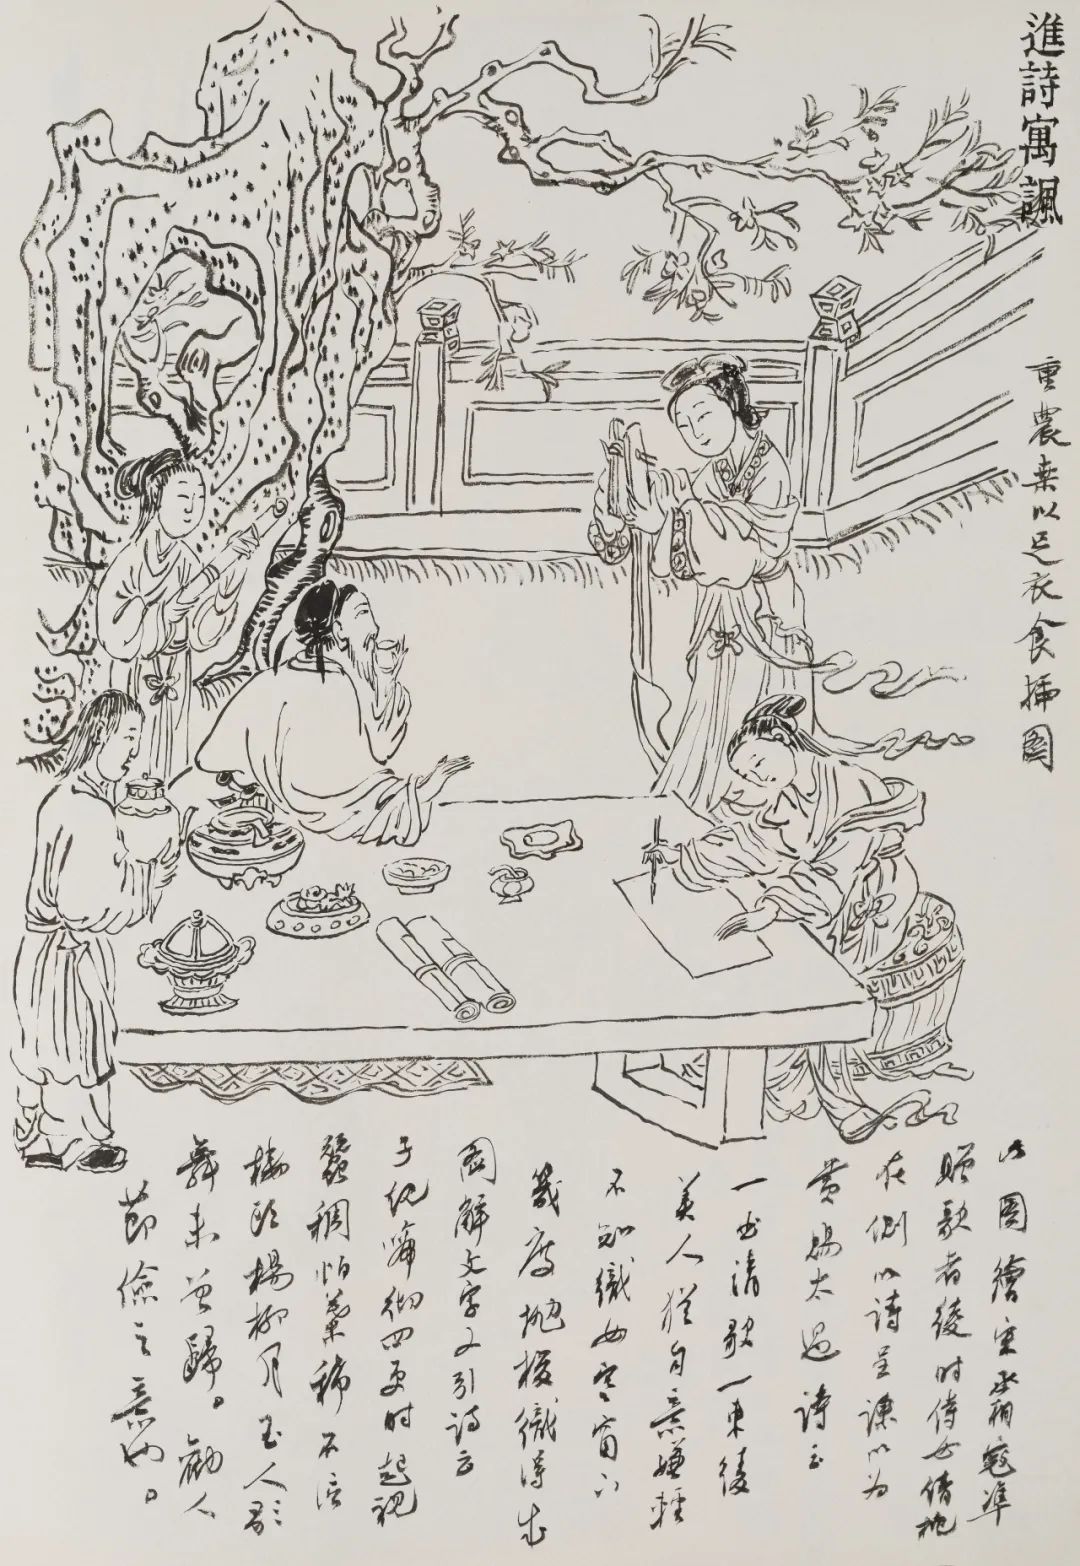 進詩寓諷
重農桑以足衣食插圖
此圖繪宋丞相寇準
贈歌者綾時侍女倩桃
在側以詩呈諫以為
賞賜太過詩云
一曲清歌一束綾
美人猶自意嫌輕
不知織女寒窗下
幾度拋梭織得成
圖解文字又引詩云
子規啼徹四更時起視
蠶稠怕葉稀不信
樓頭楊柳月玉人歌
舞未曾歸。勸人
節儉之意也。